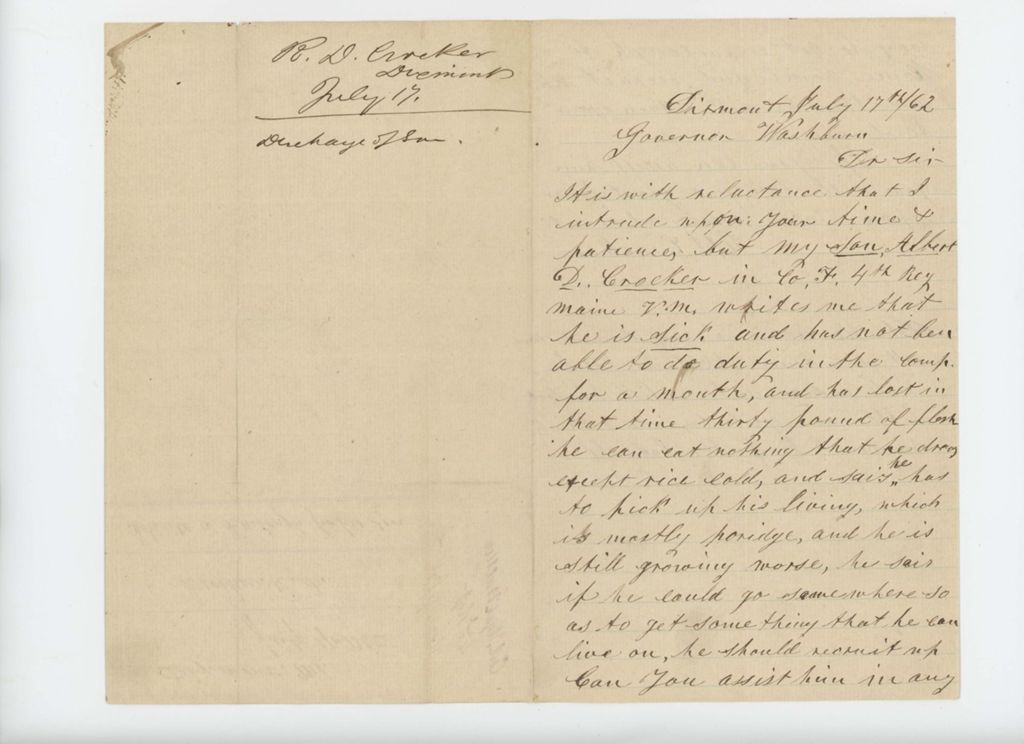 R. D. Crocker
Dixmont
July 17.
Discharge of Son.
Dixmont July 17th/62
Governor Washburn
Dr Sir
It is with reluctance that I
intrude upon your time &
patience, but my Son, Albert
D. Crocker in Co, F. 4th Reg
Maine V. M. writes me that
he is Sick and has not ben
able to do duty in the Comp.
for a month, and has lost in
that time thirty pound of flesh
he can eat nothing that he draws
except rice cold, and sais he has
to pick up his living, which
is mostly poridge, and he is
still growing worse, he sais
if he could go somewhere so
as to get something that he can
live on, he should recruit up
Can You assist him in any